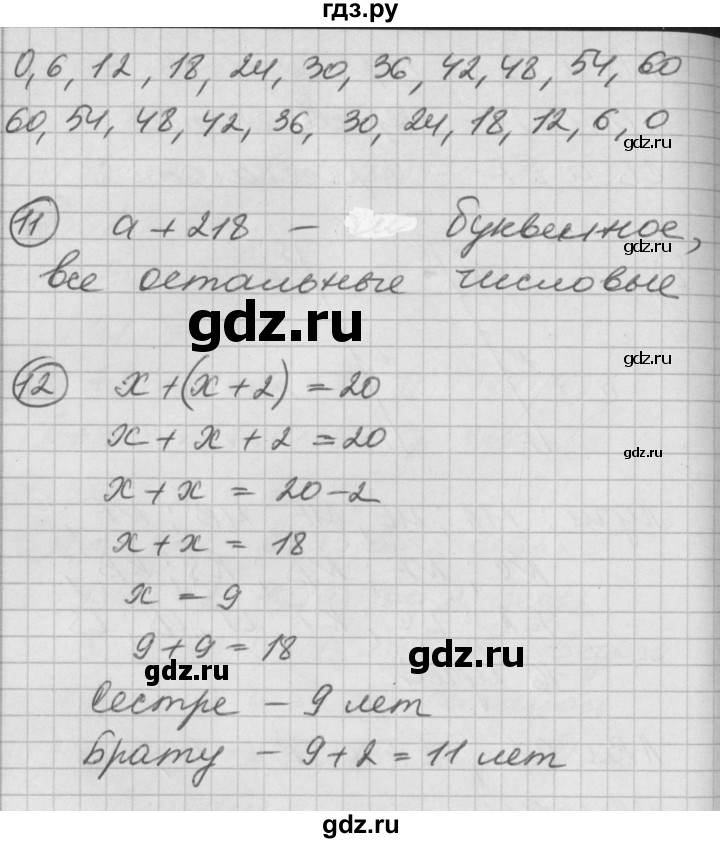 гдз.ру
0, 6, 12, 18, 24, 30, 36, 42, 48, 54, 60
60, 54, 48, 42, 36, 30, 24, 18, 12, 6, 0
gdz.ru
11 a + 218 – буквенное,
gdz.ru
все остальные числовые
gdz.ru
gdz.ru
12 x + (x + 2) = 20
x + x + 2 = 20
gdz.ru
x + x = 20 - 2
x + x = 18
x = 9
9 + 9 = 18
gdz.ru
gdz.ru
Сестре – 9 лет
Брату – 9 + 2 = 11 лет
gdz.ru